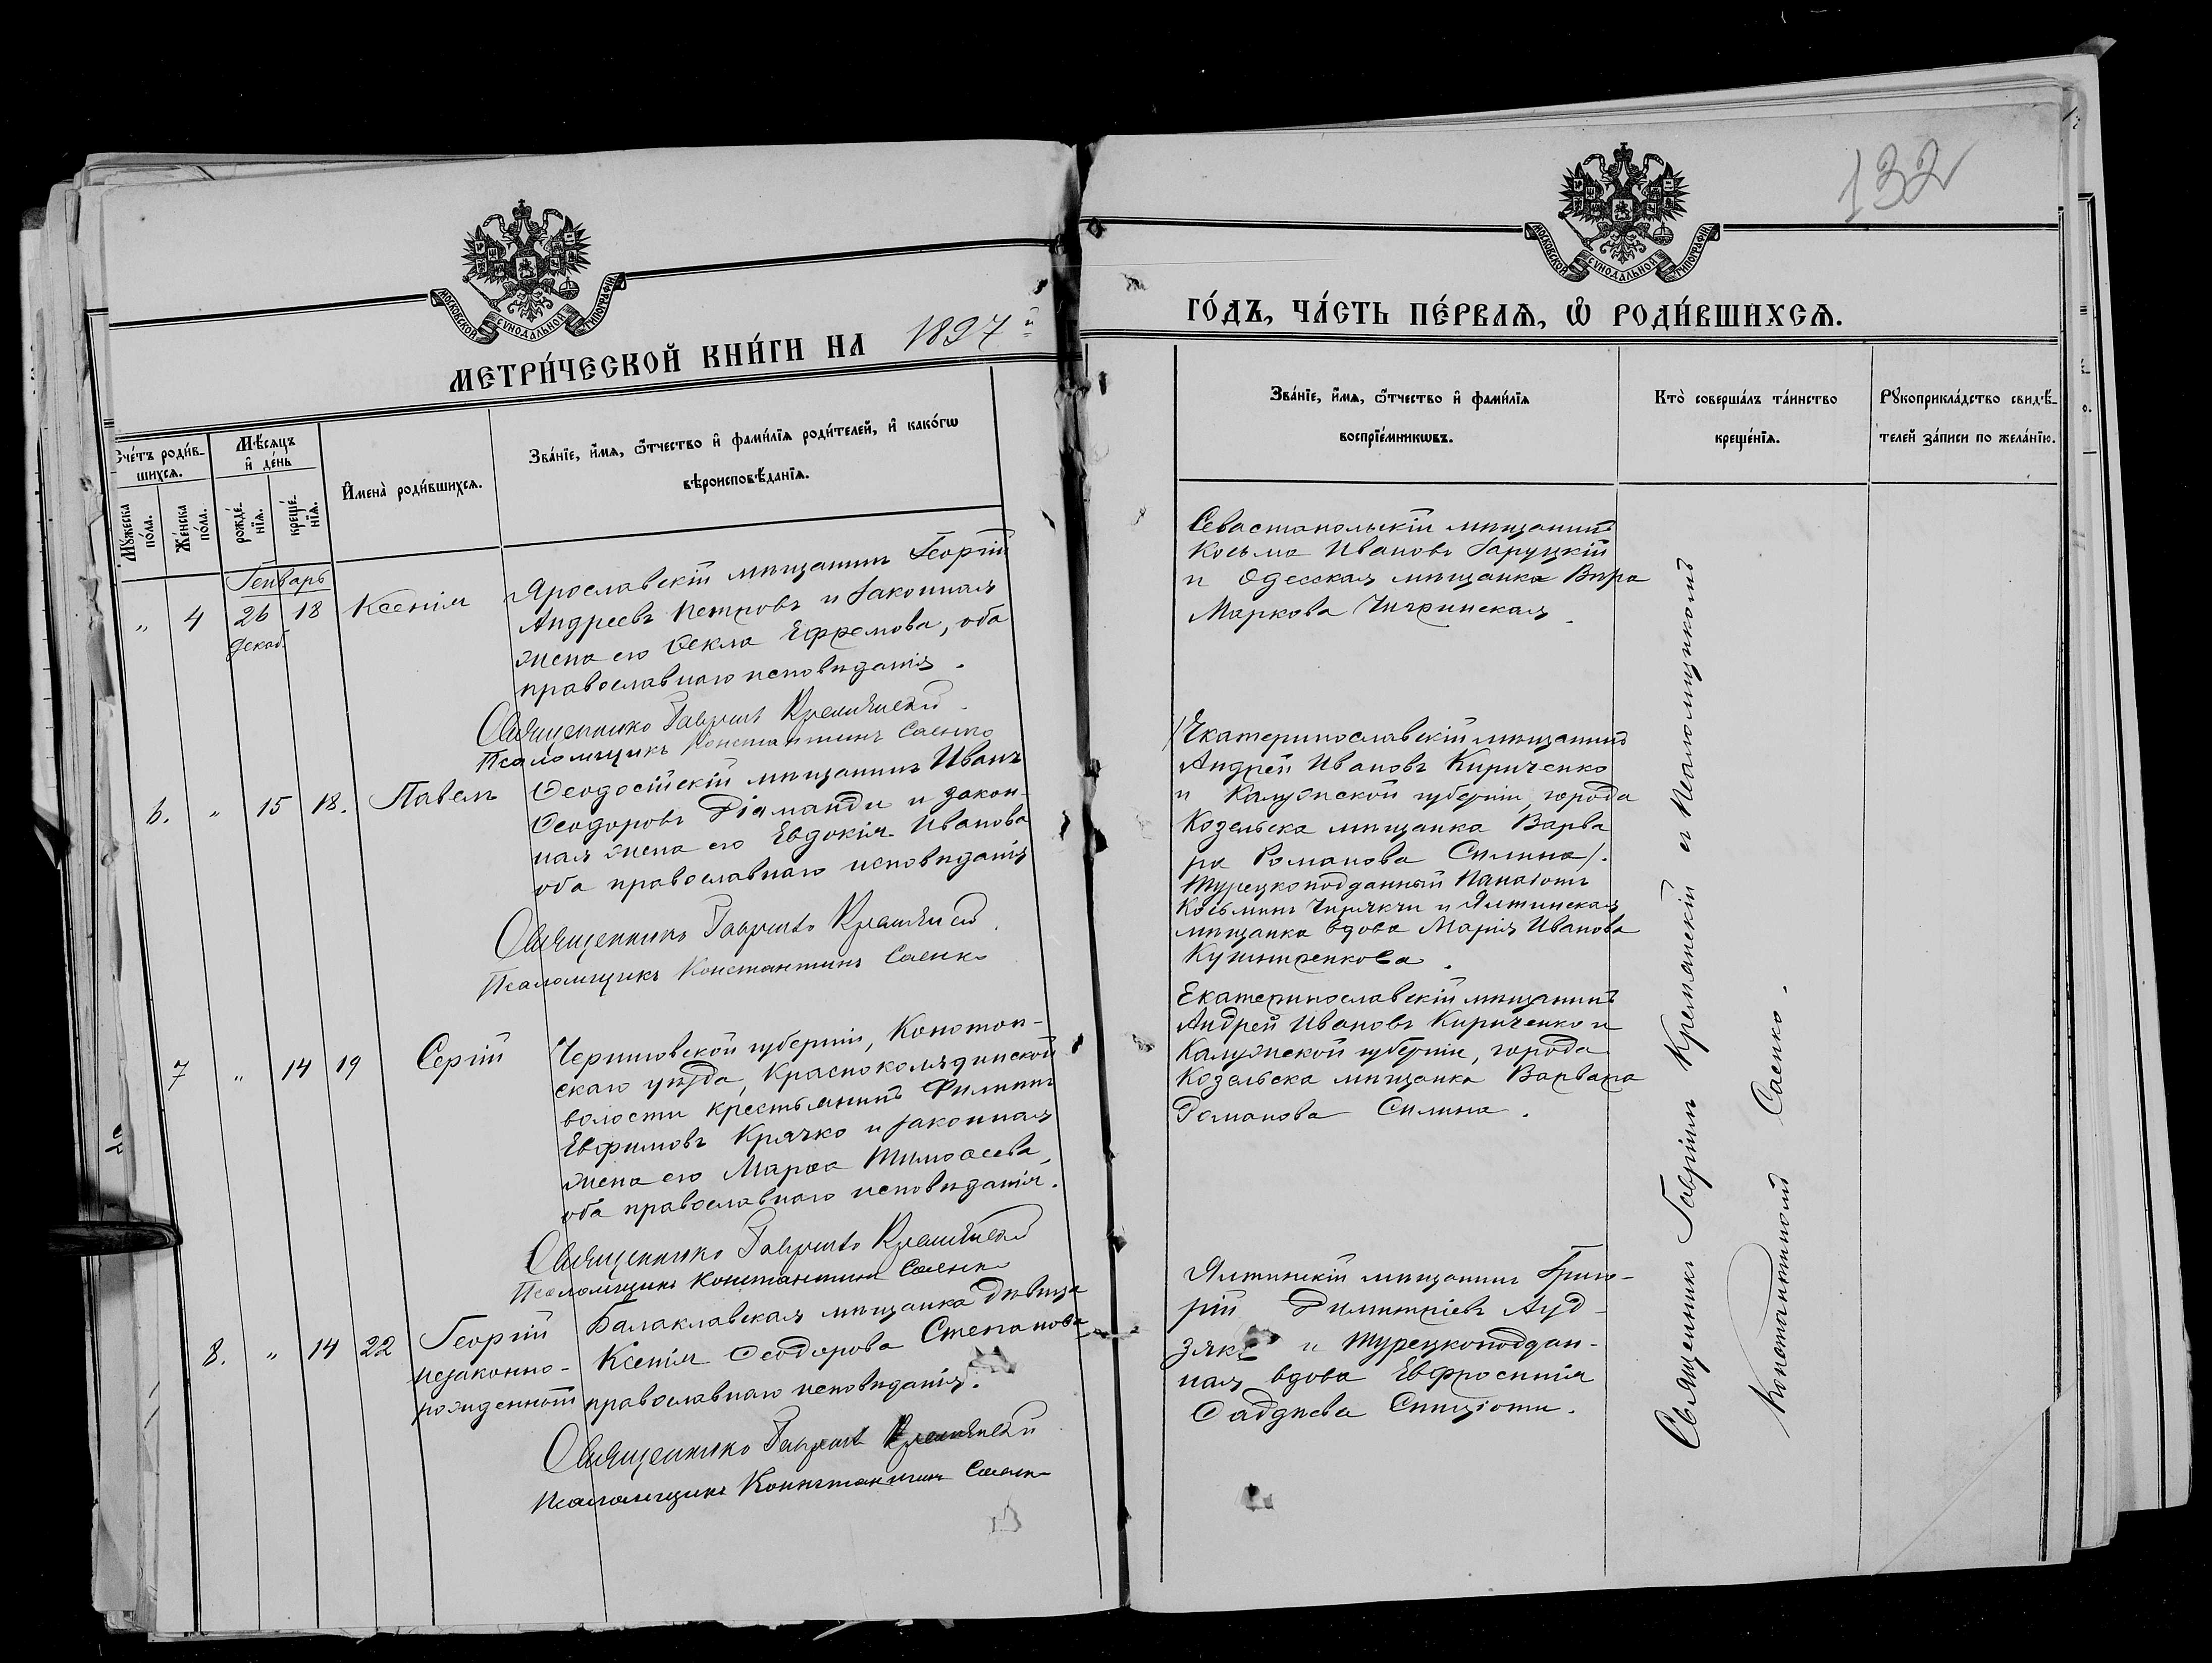 132
МОСКОВСКОЙ СѴНОДАЛЬНОЙ ТИПОГРАФІИ
МОСКОВСКОЙ СѴНОДАЛЬНОЙ ТИПОГРАФІИ
МЕТРИ́ЧЕСКОЙ КНИ́ГИ НА 1897й
ГО́ДЪ, ЧА́СТЬ ПЕ́РВАЯ, Ѽ РОДИ́ВШИХСЯ.
Сче́тъ роди́в-
шихся.
Мꙋ́жеска по́ла.
Же́нска по́ла.
Мѣ́сяцъ
и҆ де́нь
рожде́-
нїя.
креще́-
нїя.
И҆мена̀ роди́вшихся.
Зва́нїе, и҆́мя, ѻ҆́тчество и҆ фами́лїя роди́телей, и҆ како́гѡ
вѣроисповѣ́данїя.
Зва́нїе, и҆́мя, ѻ҆́тчество и҆ фами́лїя
воспрїе́мникѡвъ.
Кто̀ соверша́лъ та́инство
креще́нїя.
Рꙋкоприкла́дство свидѣ́-
телей за́писи по жела́нїю.
Генварь
„ 4 26 18 Ксенія
Декаб.
Ярославскій мѣщанинъ Георгій
Андреевъ Петровъ и законная
жена его Ѳекла Ефремова, оба
православнаго исповѣданія.
Священникъ Гавріилъ
Псаломщикъ Константинъ Саенко
Севастопольскій мѣщанинъ
Косьма Ивановъ Заруцкій
и Одесская мѣщанка Вѣра
Маркова Чигринская.
6. „ 15 18. Павелъ
Ѳеодосійскій мѣщанинъ Иванъ
Ѳеодоровъ Діаманди и закон-
ная жена его Евдокія Иванова
оба православнаго исповѣданія
Священникъ Гавріилъ
Псаломщикъ Константинъ Саенко
/Екатеринославскій мѣщанинъ
Андрей Ивановъ Кириченко
и Калужской губерніи, города
Козельска мѣщанка Варва
ра Романова Силина/.
Турецкоподданный Панаіотъ
Косьминъ и Ялтинская
мѣщанка вдова Марія Иванова
7 „ 14 19 Сергій
Черниговской губерніи, Конотоп-
скаго уѣзда, Красноколядинской
волости крестьянинъ Филиппъ
Евфимовъ Крячко и законная
жена его Марѳа Тимоѳеева,
оба православнаго исповѣданія.
Священникъ Гавріилъ
Псаломщикъ Константинъ Саенко
Екатеринославскій мѣщанинъ
Андрей Ивановъ Кириченко и
Калужской губерніи, города
Козельска мѣщанка Варвара
Романова Силина.
8. „ 14 22 Георгій
незаконно-
рожденный
Балаклавская мѣщанка дѣвица
Ксенія Ѳеодорова Степанова,
православнаго исповѣданія.
Священникъ Гавріилъ
Псаломщикъ Константинъ Саенко
Ялтинскій мѣщанинъ Григо-
рій Димитріевъ
и Турецкоподдан-
ная вдова Евфросинія
Священникъ Гавріилъ Кремянскій съ Псаломщикомъ
Константиномъ Саенко.